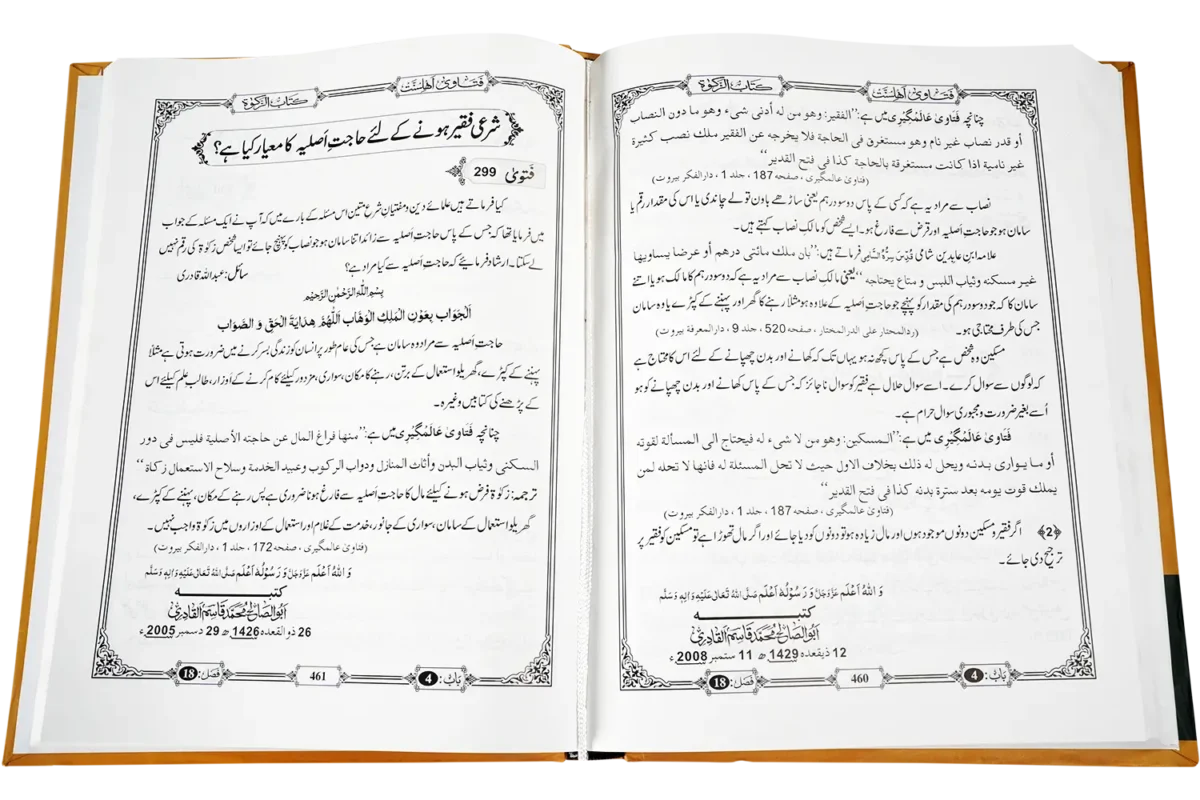 فتاویٰ اھلسنت
کتاب الزکوٰۃ
چنانچہ فَتَاویٰ عَالَمْگِیْرِی میں ہے:”الفقير: وهو من له أدنى شىء وهو ما دون النصاب
أو قدر نصاب غير نام وهو مستغرق فى الحاجة فلا يخرجه عن الفقير ملك نصب كثيرة
غير نامية اذا كانت مستغرقة بالحاجة كذا فى فتح القدير“
(فتاویٰ عالمگیری ، صفحہ 187 ، جلد 1 ، دارالفکر بیروت)
نصاب سے مراد یہ ہے کہ کسی کے پاس دو سو درہم یعنی ساڑھے باون تولے چاندی یا اس کی مقدار رقم یا
سامان ہو جو حاجتِ اَصلیہ اور قرض سے فارغ ہو۔ ایسے شخص کو مالکِ نصاب کہتے ہیں۔
علامہ ابن عابدین شامی قُدِّسَ سِرُّہُ السَّامِی فرماتے ہیں:”بان ملك مائتى درهم أو عرضا يساويها
غير مسكنه وثياب اللبس و متاع يحتاجه“یعنی مالکِ نصاب سے مراد یہ ہے کہ دو سو درہم کا مالک ہو یا اتنے
سامان کا کہ جو دو سو درہم کی مقدار کو پہنچے جو حاجتِ اَصلیہ کے علاوہ ہو مثلاً رہنے کا گھر اور پہننے کے کپڑے یا وہ سامان
جس کی طرف محتاجی ہو۔ (ردالمحتار علی الدرالمختار ، صفحہ 520 ، جلد 9 ، دارالمعرفة بيروت)
مسکین وہ شخص ہے جس کے پاس کچھ نہ ہو یہاں تک کہ کھانے اور بدن چھپانے کے لئے اس کا محتاج ہے
کہ لوگوں سے سوال کرے۔ اسے سوال حلال ہے فقیر کو سوال ناجائز کہ جس کے پاس کھانے اور بدن چھپانے کو ہو
اُسے بغیر ضرورت و مجبوری سوال حرام ہے۔
فَتَاویٰ عَالَمْگِیْرِی میں ہے:”المسكين: وهو من لا شىء له فيحتاج الى المسألة لقوته
أو ما يوارى بدنه ويحل له ذلك بخلاف الاول حيث لا تحل المسئلة له فانها لا تحله لمن
يملك قوت يومه بعد سترة بدنه كذا فى فتح القدير“
(فتاویٰ عالمگیری ، صفحہ 187 ، جلد 1 ، دارالفکر بیروت)
﴿2﴾ اگر فقیر و مسکین دونوں موجود ہوں اور مال زیادہ ہو تو دونوں کو دیا جائے اور اگر مال تھوڑا ہے تو مسکین کو فقیر پر
ترجیح دی جائے۔
وَ اللّٰہُ اَعْلَم عَزَّوَجَلَّ وَ رَسُوْلُہٗ اَعْلَم صَلَّی اللّٰہُ تَعَالٰی عَلَیْہِ وَاٰلِہٖ وَسَلَّم
کتبہ
اَبُوالصَّالِح مُحَمَّد قَاسِمُ القَادِرِی
12 ذیقعدہ 1429 ھ 11 ستمبر 2008 ء
باب: 4
460
فصل: 18
فتاویٰ اھلسنت
کتاب الزکوٰۃ
شرعی فقیر ہونے کے لئے حاجتِ اَصلیہ کا معیار کیا ہے؟
فَتویٰ 299
کیا فرماتے ہیں علمائے دین و مفتیانِ شرعِ متین اس مسئلہ کے بارے میں کہ آپ نے ایک مسئلہ کے جواب
میں فرمایا تھا کہ جس کے پاس حاجتِ اَصلیہ سے زائد اتنا سامان ہو جو نصاب کو پہنچ جائے تو ایسا شخص زکوٰۃ کی رقم نہیں
لے سکتا۔ ارشاد فرمائیے کہ حاجتِ اَصلیہ سے کیا مراد ہے؟ سائل: عبداللہ قادری
بِسْمِ اللّٰہِ الرَّحْمٰنِ الرَّحِیْم
اَلْجَوَاب بِعَوْنِ الْمَلِکِ الْوَھَّابِ اَللّٰھُمَّ ھِدَایَۃَ الْحَقِّ وَ الصَّوَاب
حاجتِ اَصلیہ سے مراد وہ سامان ہے جس کی عام طور پر انسان کو زندگی بسر کرنے میں ضرورت ہوتی ہے مثلاً
پہننے کے کپڑے، گھریلو استعمال کے برتن، رہنے کا مکان، سواری، مزدور کیلئے کام کرنے کے اَوزار، طالب علم کیلئے اس
کے پڑھنے کی کتابیں وغیرہ۔
چنانچہ فَتَاویٰ عَالَمْگِیْرِی میں ہے:”منها فراغ المال عن حاجته الأصلية فليس فى دور
السكنى وثياب البدن وأثاث المنازل ودواب الركوب وعبيد الخدمة وسلاح الاستعمال زكاة“
ترجمہ: زکوٰۃ فرض ہونے کیلئے مال کا حاجتِ اَصلیہ سے فارغ ہونا ضروری ہے پس رہنے کے مکان، پہننے کے کپڑے،
گھریلو استعمال کے سامان، سواری کے جانور، خدمت کے غلام اور استعمال کے اوزاروں میں زکوٰۃ واجب نہیں۔
(فتاویٰ عالمگیری ، صفحہ 172 ، جلد 1 ، دارالفکر بیروت)
وَ اللّٰہُ اَعْلَم عَزَّوَجَلَّ وَ رَسُوْلُہٗ اَعْلَم صَلَّی اللّٰہُ تَعَالٰی عَلَیْہِ وَاٰلِہٖ وَسَلَّم
کتبہ
اَبُوالصَّالِح مُحَمَّد قَاسِمُ القَادِرِی
26 ذوالقعدہ 1426 ھ 29 دسمبر 2005 ء
باب: 4
461
فصل: 18